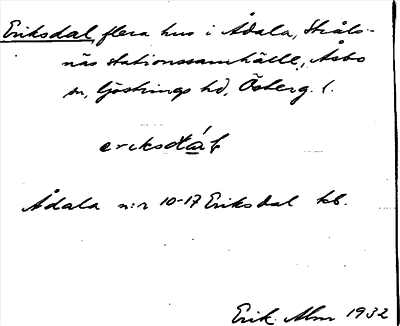 Eriksdal, flera hus i Ådala, Stråls-
näs stationssamhälle, Åsbo
sn, Göstrings hd, Österg. l.
eriksdál
Ådala n:r 10-17 Eriksdal kb.
Erik Alm 1932